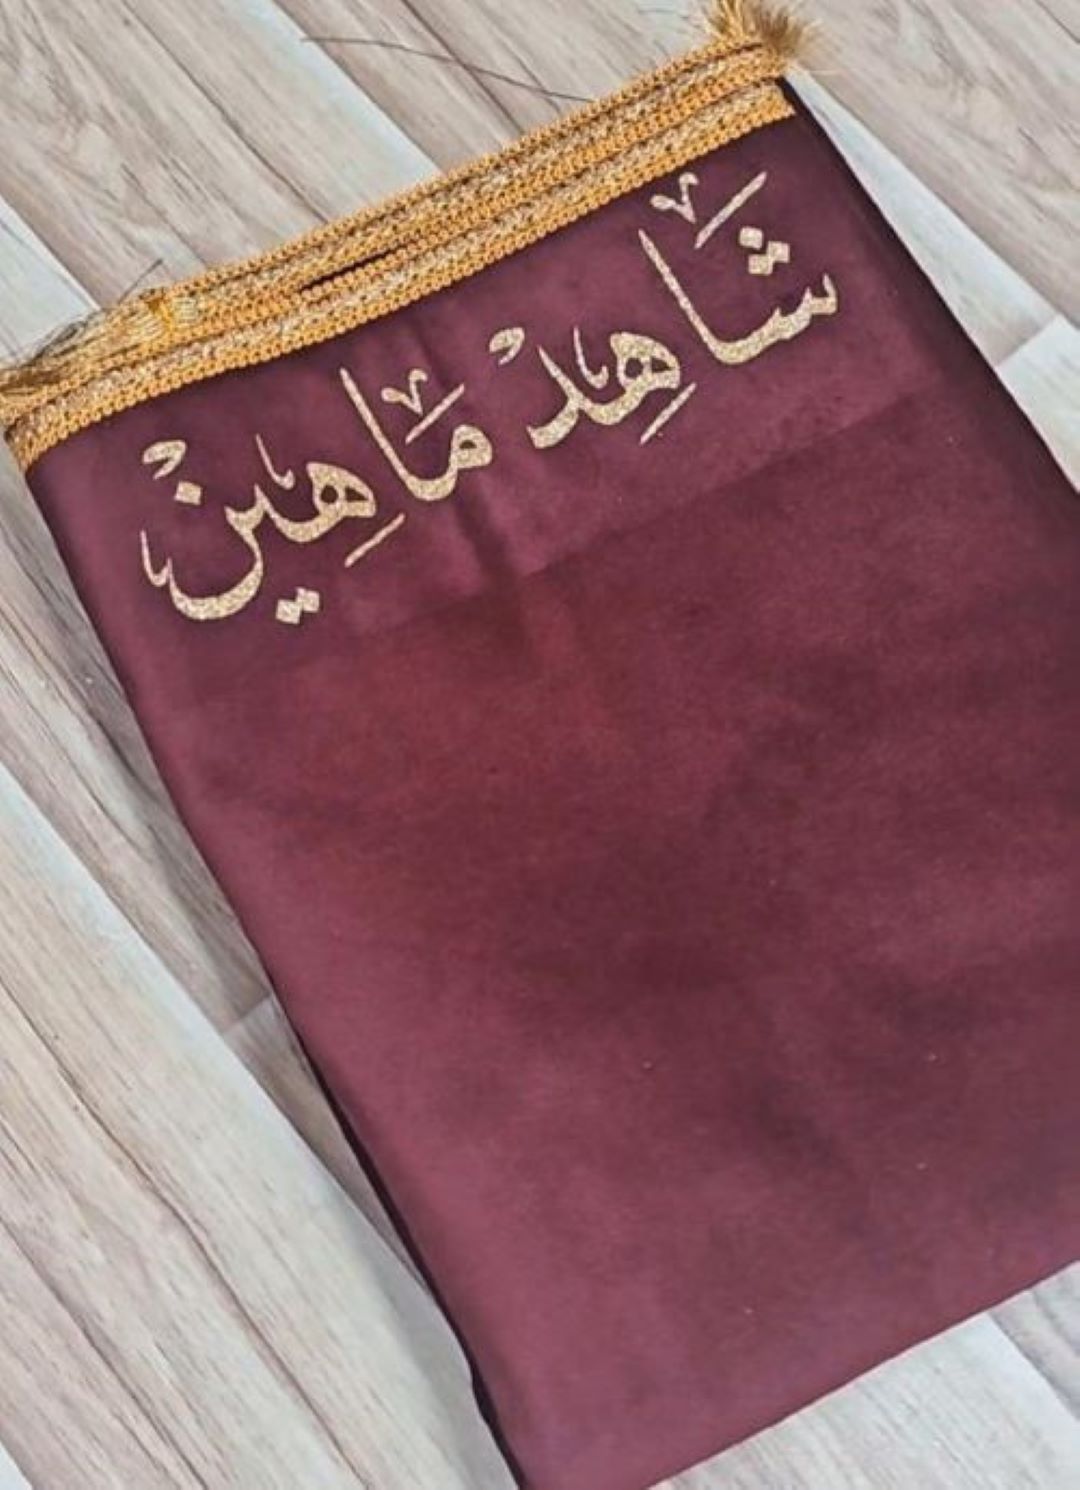 شَاهِدْ مَاهِينْ